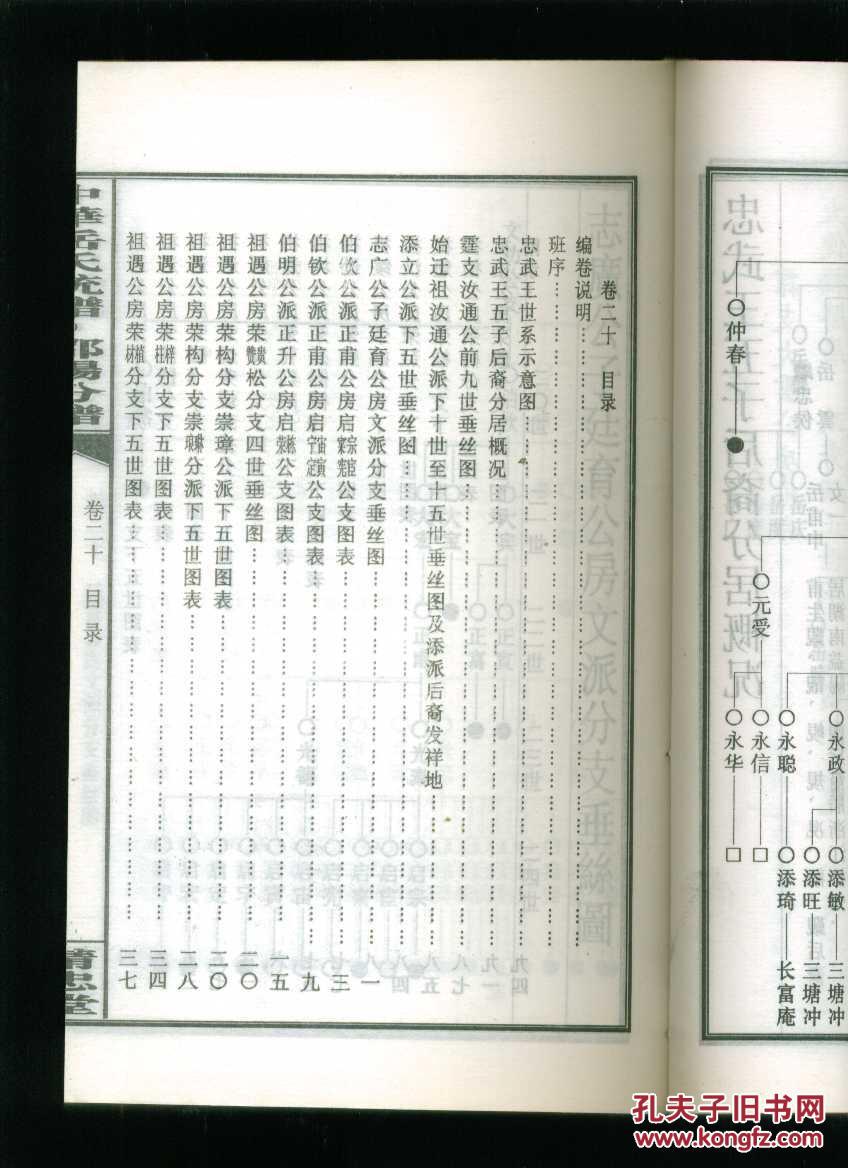 永政 添敏 三塘冲
添旺 三塘冲
永聪 添琦 长富庵
元受 永信 □
永华 □
仲春
卷二十 目录
编卷说明
班序
忠武王世系示意图
忠武王五子后裔分居概况
霆支汝通公前九世垂丝图
始迁祖汝通公派下十世至十五世垂丝图及添派后裔发祥地
添立公派下五世垂丝图
志广公子廷育公房文派分支垂丝图 一
伯钦公派正甫公房启公支图表 三
伯钦公派正甫公房启公支图表 九
伯明公派正升公房启公支图表 一五
祖遇公房荣松分支四世垂丝图 二〇
祖遇公房荣构分支崇璋公派下五世图表 二〇
祖遇公房荣构分支崇分派下五世图表 二八
祖遇公房荣分支下五世图表 三四
祖遇公房荣分支下五世图表 三七
中華岳氏统譜 邵陽分譜
卷二十 目录
精忠堂
孔夫子旧书网
www.kongfz.com